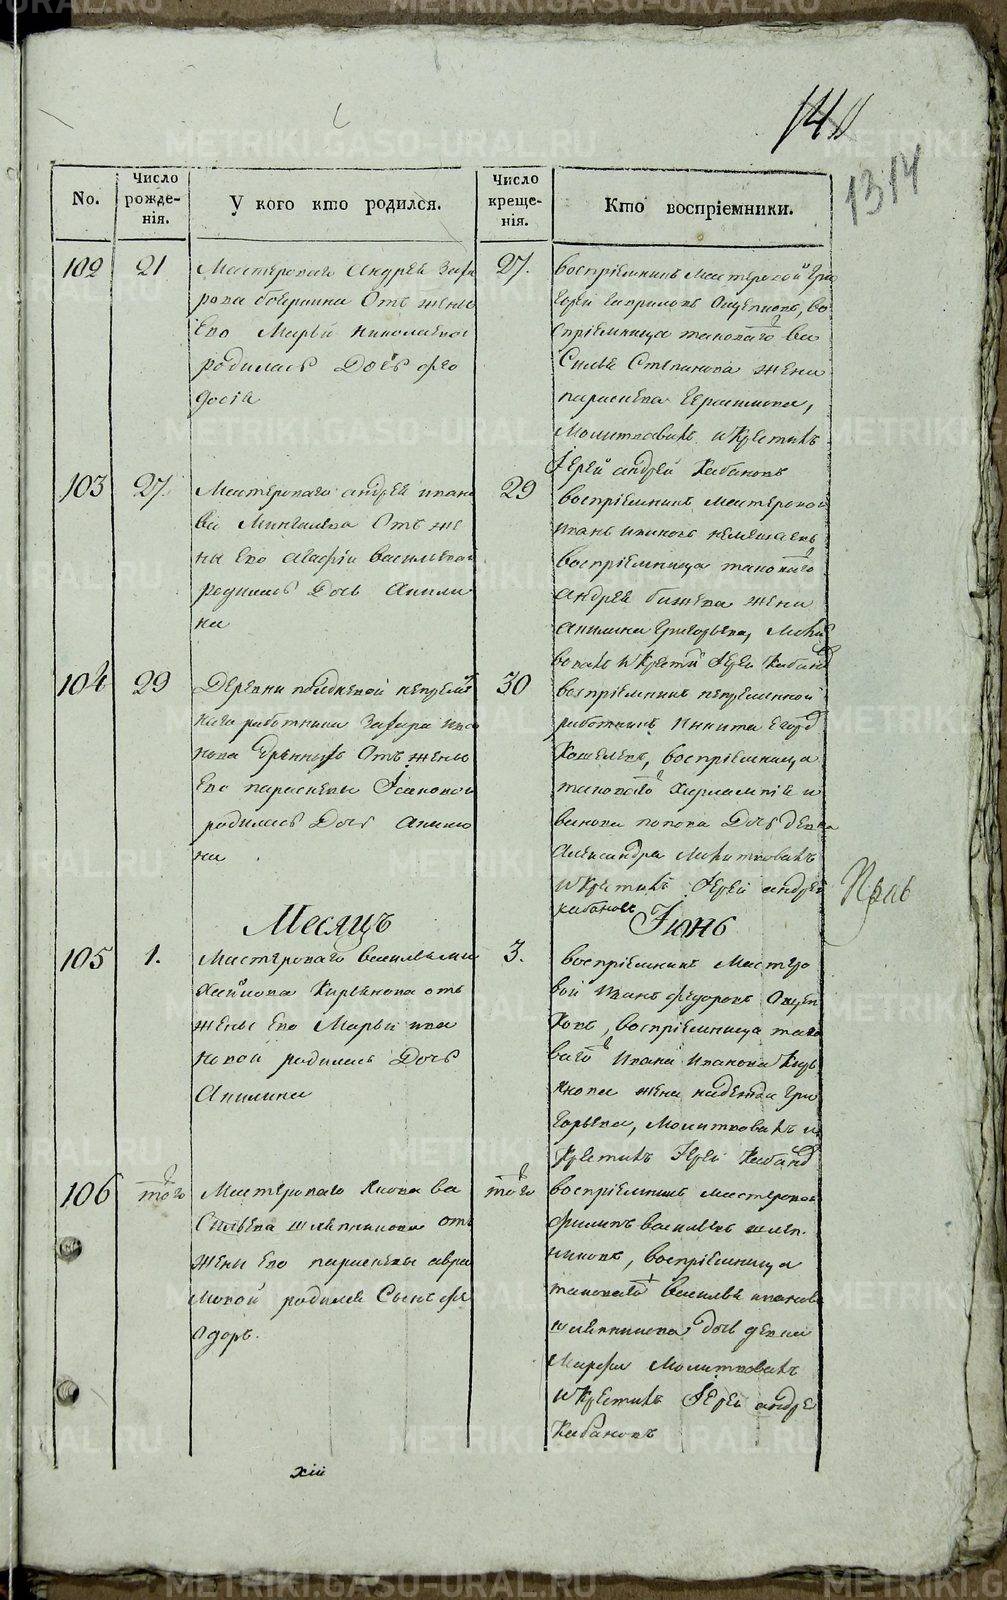 140
1314
No.
Число рожде-нія.
У кого кто родился.
Число креще-нія.
Кто воспріемники.
102
21
Мастероваго Андрея Заха
рова Отъ жены
Его Марьи Николаевой
родилась Дочь Фео
досія
27.
Воспріемникъ Мастеровой Гри
горей Гавриловъ Ощепковъ, во
спріемница таковаго Ва
силья Степанова жена
параскева Герасимова,
Молитвовалъ и Крестилъ
Іерей андрей Кабаковъ
103
27.
Мастероваго андрея ива
Отъ же
ны Его Агафіи васильевой
родилась Дочь Акили
на
29
воспріемникъ Мастеровой
иванъ ивановъ
воспріемница таковаго
андрея жена
акилина григорьева, Моли
вовалъ и Крести Іерей Кабак
104
29
Деревни непремѣ
наго работника Захара ива
нова Отъ жены
Его параскевы Ісаковой
родилась Дочь Акили
на
30
воспріемникъ непременной
работникъ Никита Егор
воспріемница
таковаго Харлампія и
ванова попова Дочь девка
Александра Молитвовалъ
и Крестилъ Іерей андрей
кабаковъ
Прав
Месяцъ
Іюнь
105
1.
Мастероваго василья ми
хайлова отъ
жены Его Марьи ива
новой родилась Дочь
Акилина
3.
воспріемникъ Мастеро
вой Иванъ федоровъ Ощеп
ковъ, воспріемница тако
ваго Ивана Иванова
жена надежда Гри
горьева, Молитвовалъ и
Крестилъ Іерей Кабак
106
того
Мастероваго Якова ва
сильева шляпникова отъ
жены Его параскевы авра
мовой родился Сынъ Фе
одоръ.
того
воспріемникъ мастеровой
филипъ васильевъ шляп
никовъ, воспріемница
таковаго василья иванова
шляпникова дочь девка
Марфа Молитвовалъ
и Крестилъ Іерей андре
Кабаковъ
METRIKI.GASO-URAL.RU